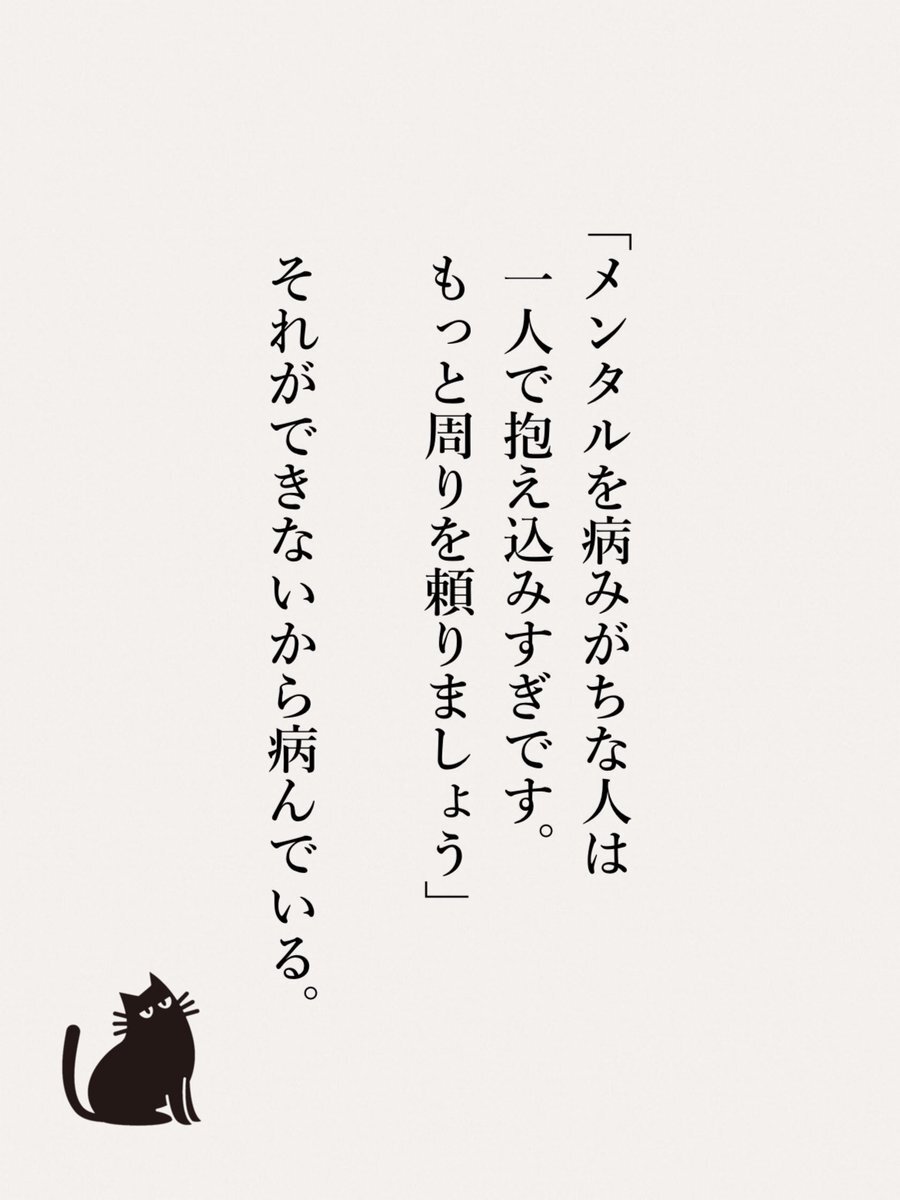 「メンタルを病みがちな人は
一人で抱え込みすぎです。
もっと周りを頼りましょう」
それができないから病んでいる。